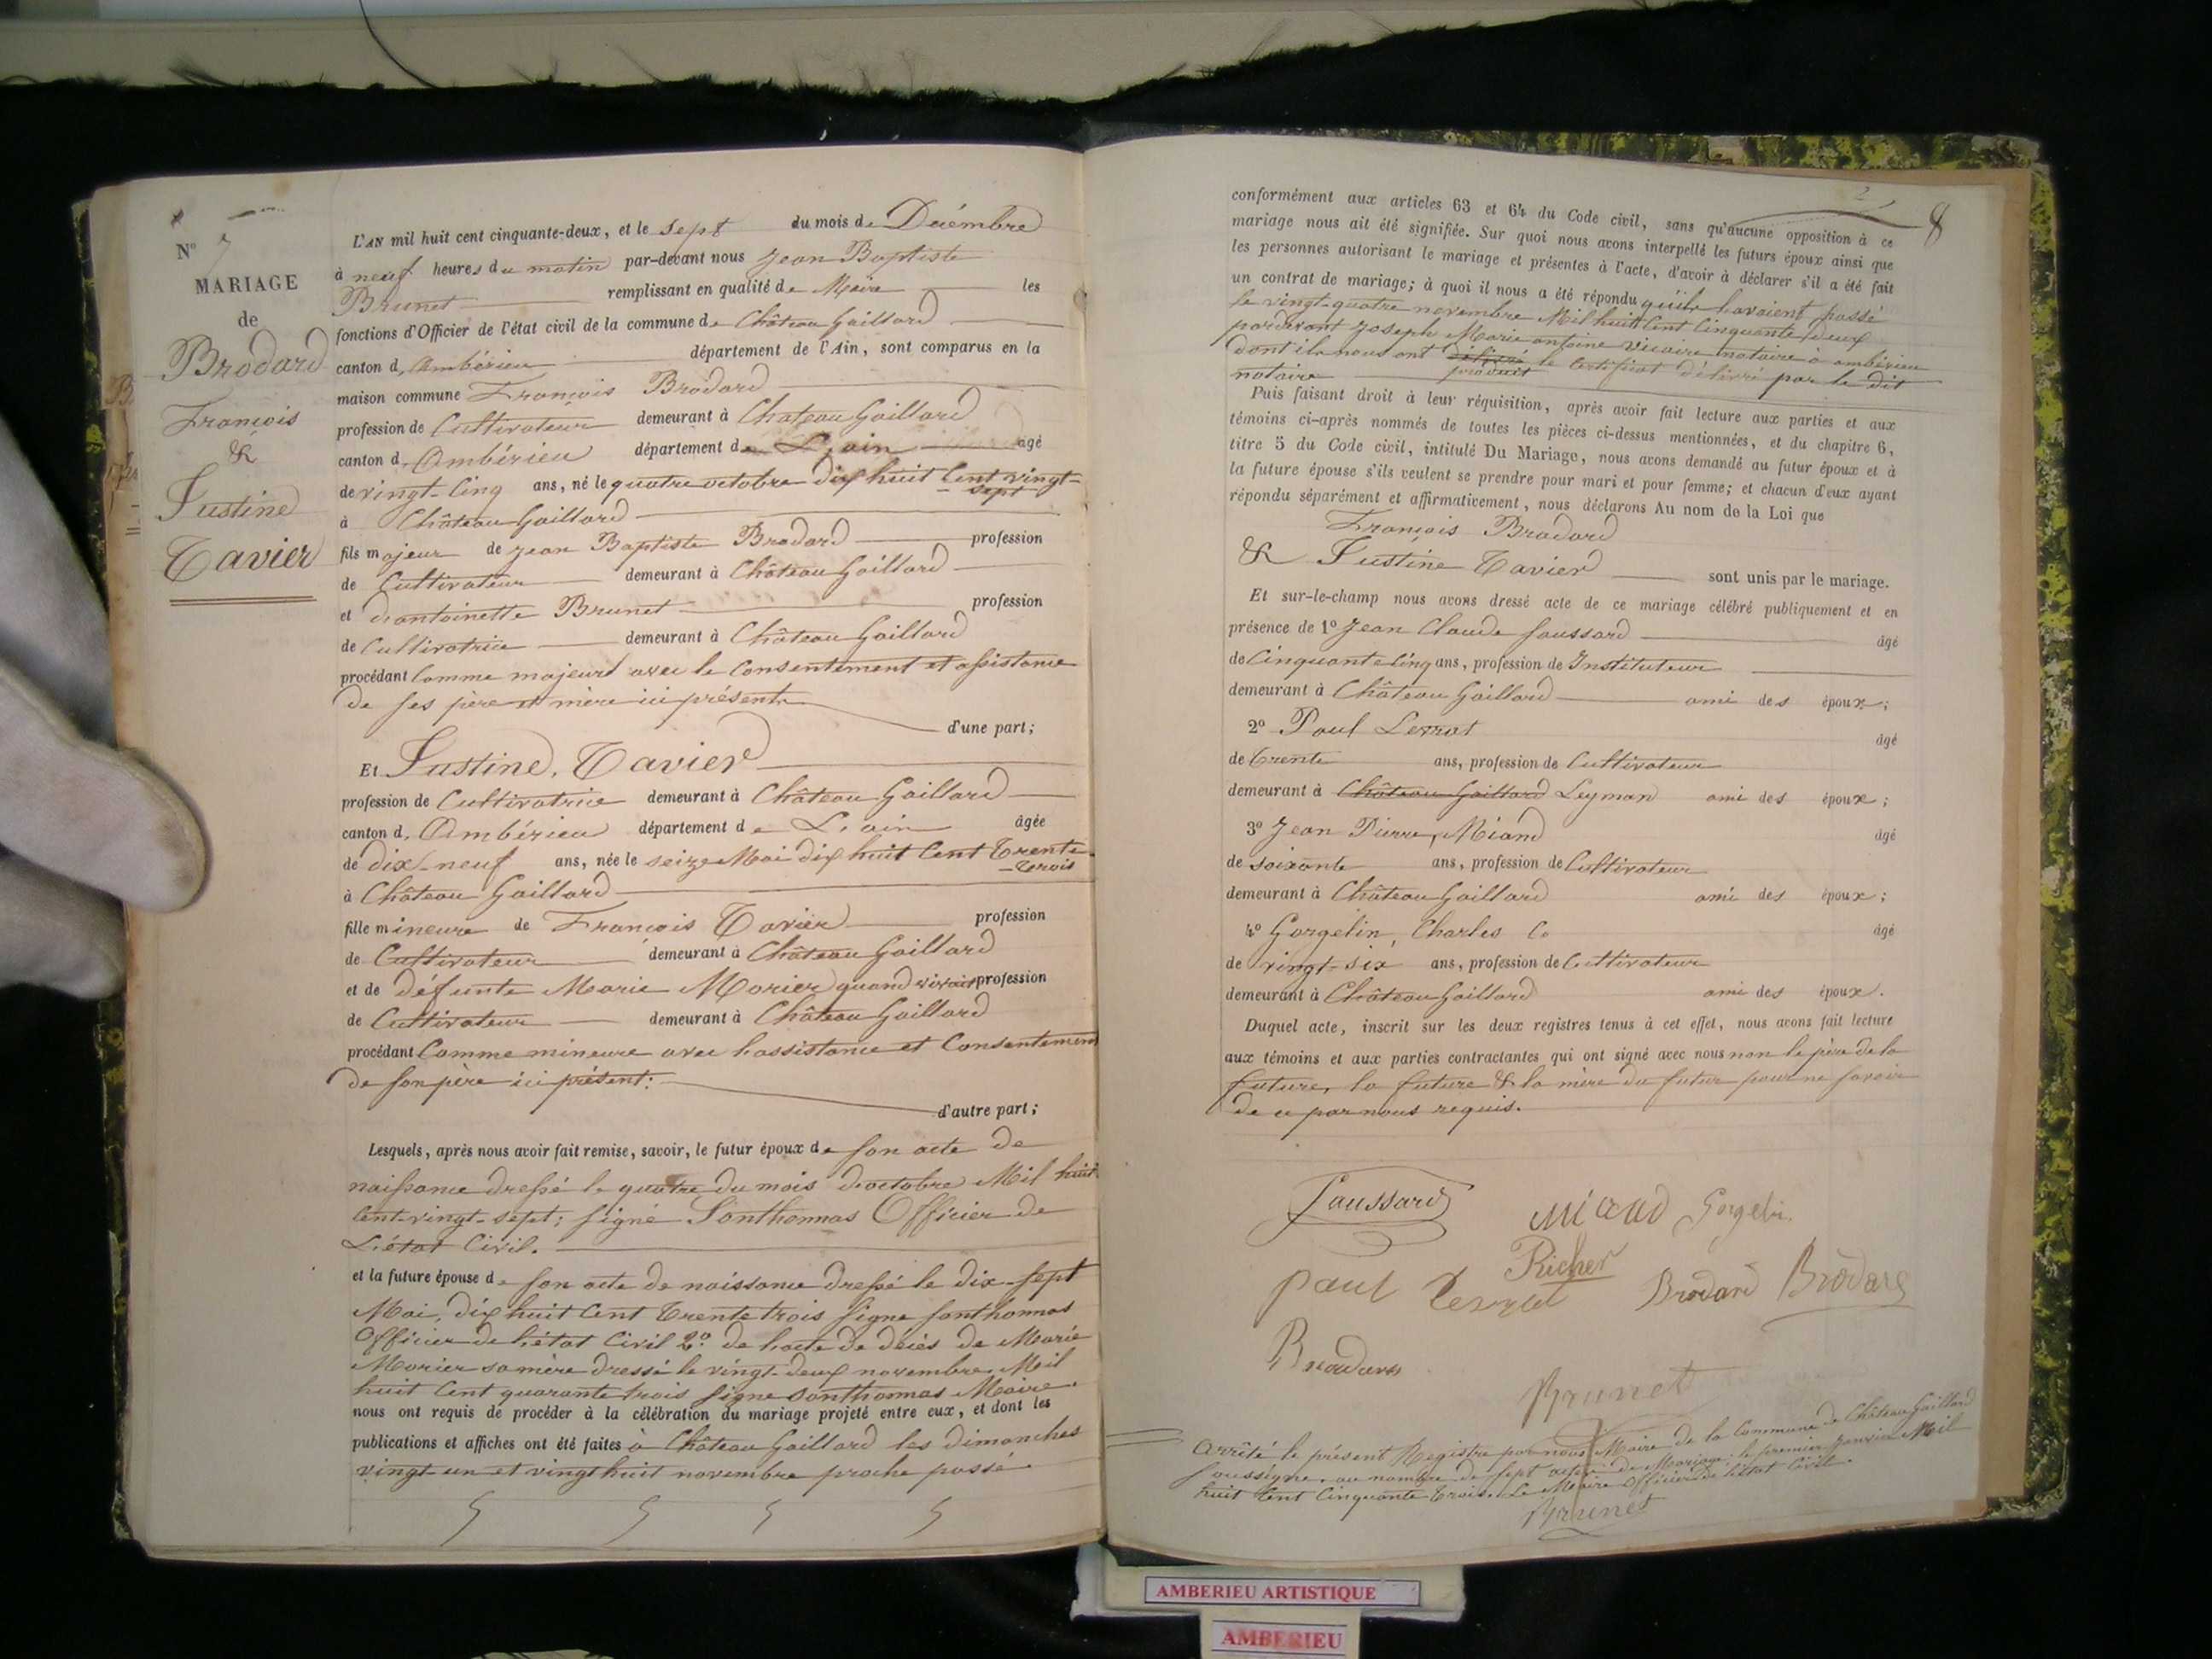 N° 7
MARIAGE
de
Brodard
François
&
Justine
Tavier
L'AN mil huit cent cinquante-deux, et le sept du mois de Décembre
à neuf heures du matin par-devant nous Jean Baptiste
Brunet remplissant en qualité de Maire les
fonctions d'Officier de l'état civil de la commune de Château Gaillard
canton d'Ambérieu département de l'Ain, sont comparus en la
maison commune François Brodard
profession de Cultivateur demeurant à Chateau Gaillard
canton d'Ambérieu département de L'ain âgé
de vingt-Cinq ans, né le quatre octobre dix huit Cent vingt-
- sept
à Château Gaillard
fils majeur de Jean Baptiste Brodard profession
de Cultivateur demeurant à Château Gaillard
et d'antoinette Brunet profession
de Cultivatrice demeurant à Château Gaillard
procédant Comme majeur avec le Consentement et assistance
de ses père et mère ici présents
d'une part;
Et Justine, Tavier
profession de Cultivatrice demeurant à Château Gaillard
canton d'Ambérieu département de L'ain âgée
de dix-neuf ans, née le seize Mai dix huit Cent Trente-
- Trois
à Château Gaillard
fille mineure de François Tavier profession
de Cultivateur demeurant à Château Gaillard
et de défunte Marie Morier quand vivait profession
de Cultivateur demeurant à Château Gaillard
procédant Comme mineure avec l'assistance et Consentement
de son père ici présent:
d'autre part;
Lesquels, après nous avoir fait remise, savoir, le futur époux de son acte de
naissance dressé le quatre du mois d'octobre Mil huit
Cent-vingt-sept; signé Sonthonnas Officier de
L'état Civil.
et la future épouse de son acte de naissance dressé le dix-sept
Mai, dix huit Cent Trente trois signé Sonthonnas
Officier de l'état Civil 2° de l'acte de décès de Marie
Morier sa mère dressé le vingt-deux novembre Mil
huit Cent quarante trois signé Sonthonnas Maire.
nous ont requis de procéder à la célébration du mariage projeté entre eux, et dont les
publications et affiches ont été faites à Château Gaillard les dimanches
vingt-un et vingt huit novembre proche passé.
8
conformément aux articles 63 et 64 du Code civil, sans qu'aucune opposition à ce
mariage nous ait été signifiée. Sur quoi nous avons interpellé les futurs époux ainsi que
les personnes autorisant le mariage et présentes à l'acte, d'avoir à déclarer s'il a été fait
un contrat de mariage; à quoi il nous a été répondu qu'ils l'avaient passé
le vingt-quatre novembre Mil huit Cent Cinquante deux
pardevant Joseph Marie antoine vicaire notaire à ambérieu
dont ils nous ont délivré le Certificat délivré par le dit
produit
notaire
Puis faisant droit à leur réquisition, après avoir fait lecture aux parties et aux
témoins ci-après nommés de toutes les pièces ci-dessus mentionnées, et du chapitre 6,
titre 5 du Code civil, intitulé Du Mariage, nous avons demandé au futur époux et à
la future épouse s'ils veulent se prendre pour mari et pour femme; et chacun d'eux ayant
répondu séparément et affirmativement, nous déclarons Au nom de la Loi que
François Brodard
& Justine Tavier sont unis par le mariage.
Et sur-le-champ nous avons dressé acte de ce mariage célébré publiquement et en
présence de 1° Jean Claude Jaussard âgé
de Cinquante Cinq ans, profession de Instituteur
demeurant à Château Gaillard ami des époux;
2° Paul Leyrat âgé
de Trente ans, profession de Cultivateur
demeurant à Château Gaillard Leyman ami des époux;
3° Jean Pierre, Miand âgé
de soixante ans, profession de Cultivateur
demeurant à Château Gaillard ami des époux;
4° Gorgelin, Charles C. âgé
de vingt-six ans, profession de Cultivateur
demeurant à Château Gaillard ami des époux.
Duquel acte, inscrit sur les deux registres tenus à cet effet, nous avons fait lecture
aux témoins et aux parties contractantes qui ont signé avec nous non le père de la
future, la future & la mère du futur pour ne savoir
de ce par nous requis.
Jaussard
Miand Gorgelin
Richer
paul Brodard Brodard
Brodard
Brunet
Arrêté le présent Registre par nous Maire de la Commune de Château Gaillard
soussigné, au nombre de sept actes de Mariage; le premier Janvier Mil
huit Cent Cinquante Trois. Le Maire Officier de l'état Civil.
Brunet
AMBERIEU ARTISTIQUE
AMBERIEU